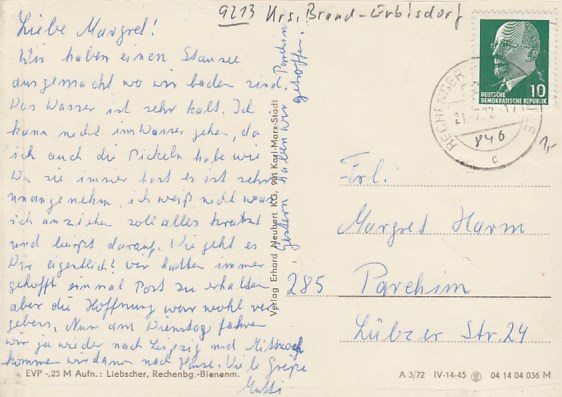 9213 Krs. Brand-Erbisdorf
Liebe Margret!
Wir haben einen Stausee
ausgemacht wo wir baden sind.
Das Wasser ist sehr kalt. Ich
kann nicht ins Wasser gehen, da
ich auch die Pickeln habe wie
Du sie immer hast es ist sehr
unangenehm, ich weiß nicht was
ich anziehen soll alles kratzt
und darauf. Wie geht es
Dir eigentlich wir hatten immer
gehofft einmal Post zu erhalten
aber die Hoffnung war wohl ver
gebens. Nun am Dienstag fahren
wir ja wieder nach Leipzig und Mittwoch
kommen wir dann nach Hause. Viele Grüße
gestern haben wir Parchim
getroffen!
Verlag Erhard Neubert KG, 901 Karl-Marx-Stadt
DEUTSCHE
DEMOKRATISCHE REPUBLIK
10
RECHENBERG
c
846
1,-
Frl.
Margret Harm
285 Parchim
Lübzer Str. 24
EVP -,25 M Aufn.: Liebscher, Rechenbg.-Bienenm.
A 3/72 IV-14-45 04 14 04 036 M